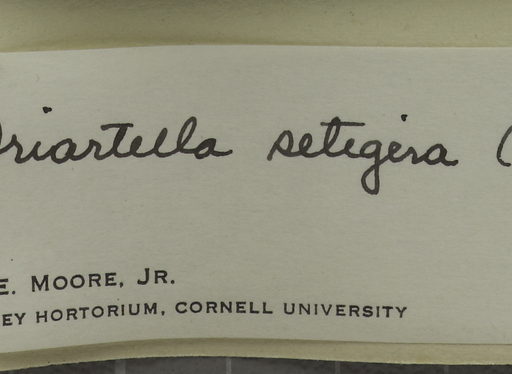 riartella setigera (
E. MOORE, JR.
EY HORTORIUM, CORNELL UNIVERSITY